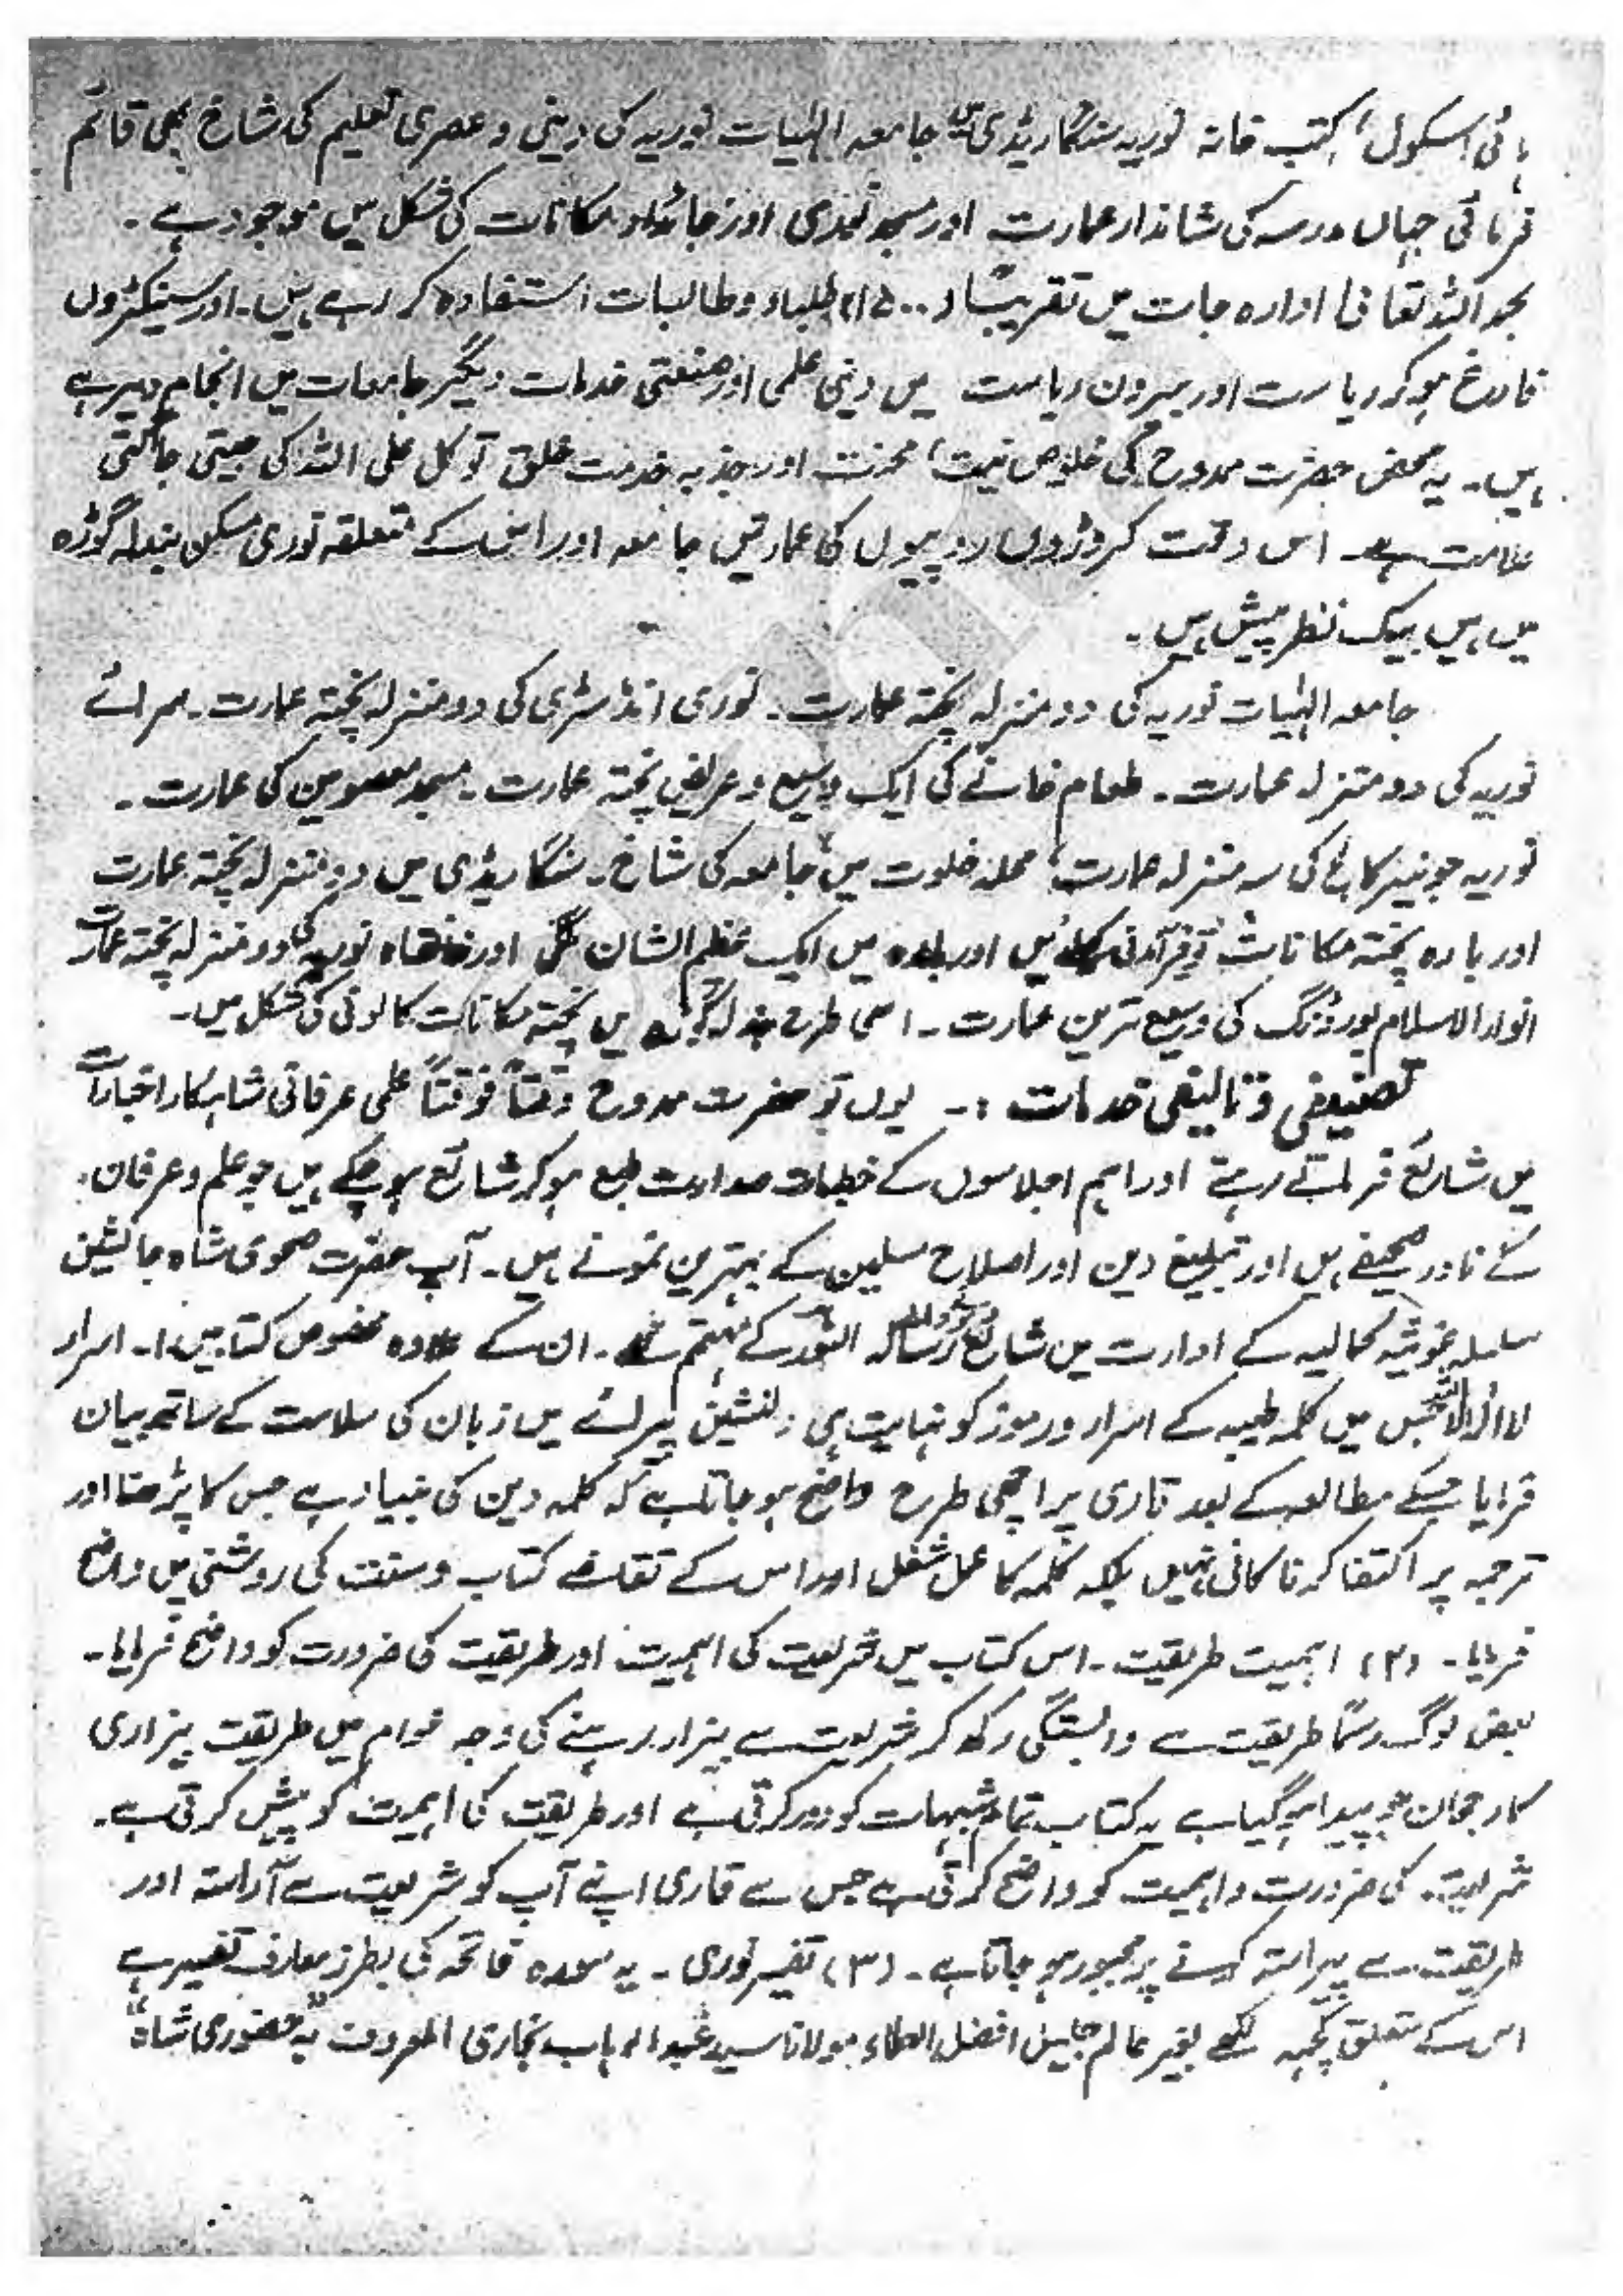 ہائی اسکول، کتب خانہ نوریہ سنگاریڈی میں جامعہ الہٰیات نوریہ کی دینی و عصری تعلیم کی شاخ بھی قائم
فرمائی جہاں مدرسہ کی شاندار عمارت اور مسجد نوری اور جائداد مکانات کی شکل میں موجود ہے ۔
بحمد اللہ تعالیٰ ادارہ جات میں تقریباً (۱۵۰۰) طلباء و طالبات استفادہ کر رہے ہیں ۔ اور سینکڑوں
فارغ ہو کر ریاست اور بیرون ریاست میں دینی علمی اور صنعتی خدمات دیگر جامعات میں انجام دیرہے
ہیں ۔ یہ محض حضرت ممدوح کی خلوص نیت، محنت اور جذبہ خدمت خلق توکل علی اللہ کی جیتی جاگتی
علامت ہے ۔ اس وقت کروڑوں روپیوں کی عمارتیں جامعہ اور اس کے متعلقہ نوری مسکن بنڈلہ گوڑہ
میں ہیں بیک نظر پیش ہیں ۔
جامعہ الہٰیات نوریہ کی دو منزلہ پختہ عمارت ۔ نوری انڈسٹری کی دو منزلہ پختہ عمارت ۔ سرائے
نوریہ کی دو منزلہ عمارت ۔ طعام خانے کی ایک وسیع و عریض پختہ عمارت ۔ مسجد معصومین کی عمارت ۔
نوریہ جونیئر کالج کی سہ منزلہ عمارت، محلہ خلوت میں جامعہ کی شاخ ۔ سنگاریڈی میں دو منزلہ پختہ عمارت
اور بارہ پختہ مکانات اور بلدہ میں ایک عظیم الشان اور خانقاہ نوریہ کی دو منزلہ پختہ عمارت
انوار الاسلام بورڈنگ کی وسیع ترین عمارت ۔ اسی طرح بنڈلہ گوڑہ میں پختہ مکانات کالونی کی شکل میں ۔
تصنیفی و تالیفی خدمات :۔ یوں تو حضرت ممدوح وقتاً فوقتاً علمی عرفانی شاہکار اخبارات
میں شائع فرماتے رہے اور اہم اجلاسوں کے خطبات صدارت طبع ہو کر شائع ہو چکے ہیں جو علم و عرفان
کے نادر صحیفے ہیں اور تبلیغ دین اور اصلاح مسلمین کے بہترین نمونے ہیں ۔ آپ حضرت صحوی شاہ جانشین
سلسلہ غوثیہ کمالیہ کے ادارت میں شائع ہونے والے رسالہ النور کے مہتمم تھے ۔ ان کے علاوہ مخصوص کتابیں ۱۔ اسرار
لا الٰہ الا اللہ جس میں کلمہ طیبہ کے اسرار و رموز کو نہایت ہی دلنشین پیرائے میں زبان کی سلاست کے ساتھ بیان
فرمایا جسکے مطالعہ کے بعد قاری پر اچھی طرح واضح ہو جاتا ہے کہ کلمہ دین کی بنیاد ہے جس کا پڑھنا اور
ترجمہ پر اکتفا کرنا کافی نہیں بلکہ کلمہ کا عمل شغل اور اس کے تقاضے کتاب و سنت کی روشنی میں واضح
فرمایا ۔ (۲) اہمیت طریقت ۔ اس کتاب میں شریعت کی اہمیت اور طریقت کی ضرورت کو واضح فرمایا ۔
بعض لوگ رسماً طریقت سے وابستگی رکھ کر شریعت سے بیزار رہنے کی وجہ عوام میں طریقت بیزاری
کا رجحان جو پیدا ہو گیا ہے یہ کتاب تمام شبہات کو دور کرتی ہے اور طریقت کی اہمیت کو پیش کرتی ہے ۔
شریعت کی ضرورت و اہمیت کو واضح کرتی ہے جس سے قاری اپنے آپ کو شریعت سے آراستہ اور
طریقت سے پیراستہ کرنے پر مجبور ہو جاتا ہے ۔ (۳) تفسیر نوری ۔ یہ سورہ فاتحہ کی بطرز معارف تفسیر ہے
اس کے متعلق کچھ لکھے بغیر عالم جلیل افضل العلماء مولانا سید عبد الوہاب بخاری المعروف بہ حضوری شاہ